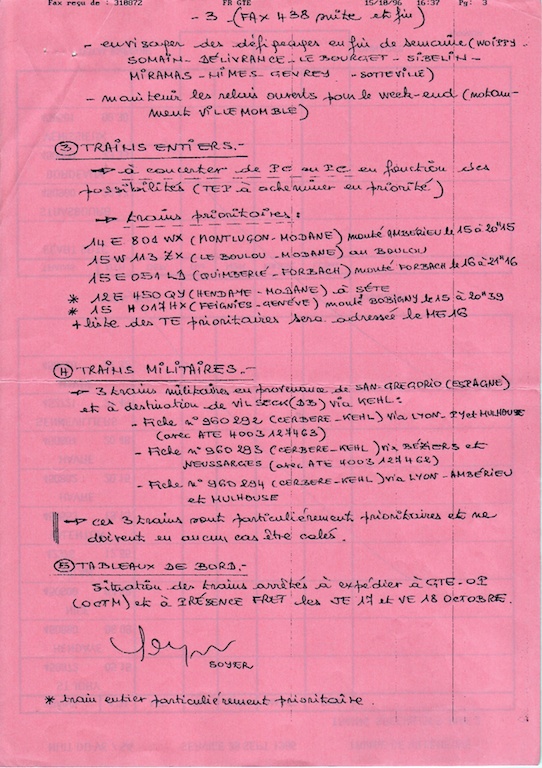 Fax reçu de : 318872 FR GTE 15/10/96 16:37 Pg: 3
- 3 - (FAX 438 suite et fin)
- envisager des dégipeages en fin de semaine (WOIPPY-
SOMAIN - DÉLIVRANCE - LE BOURGET - SIBELIN -
MIRAMAS - NIMES - GEVREY - SOTTEVILLE)
- maintenir les relais ouverts pour le week-end (notam-
ment VILLEMOMBLE)
③ TRAINS ENTIERS.-
→ à concerter de PC en PC en fonction des
possibilités (TEP à acheminer en priorité)
→ trains prioritaires :
14 E 801 WX (MONTLUÇON-MODANE) monté AMBERIEU le 15 à 20h15
15 W 113 ZX (LE BOULOU - MODANE) au BOULOU
15 E 051 LD (QUIMERLÉ - FORBACH) monté FORBACH le 16 à 21h16
* 12 E 450 QY (HENDAYE - MODANE) à SÉTE
* 15 H 017 HX (FEIGNIES - GENÉVE) monté BOBIGNY le 15 à 20h39
+ liste des TE prioritaires sera adressée le ME 16
④ TRAINS MILITAIRES.-
→ 3 trains militaires en provenance de SAN-GREGORIO (ESPAGNE)
et à destination de VILSECK (DB) via KEHL :
- Fiche n° 960292 (CERBERE - KEHL) via LYON-PY et MULHOUSE
(avec ATE 4003 127463)
- Fiche n° 960293 (CERBERE - KEHL) via BÉZIERS et
NEUSSARGES (avec ATE 4003 127462)
- Fiche n° 960294 (CERBERE - KEHL) via LYON - AMBÉRIEU
et MULHOUSE
→ ces 3 trains sont particuliérement prioritaires et ne
doivent en aucun cas être calés.
⑤ TABLEAUX DE BORD.-
Situation des trains arrêtés à expédier à GTE-OP
(OCTM) et à PRÉSENCE FRET les JE 17 et VE 18 OCTOBRE.
SOYER
* train entier particuliérement prioritaire.